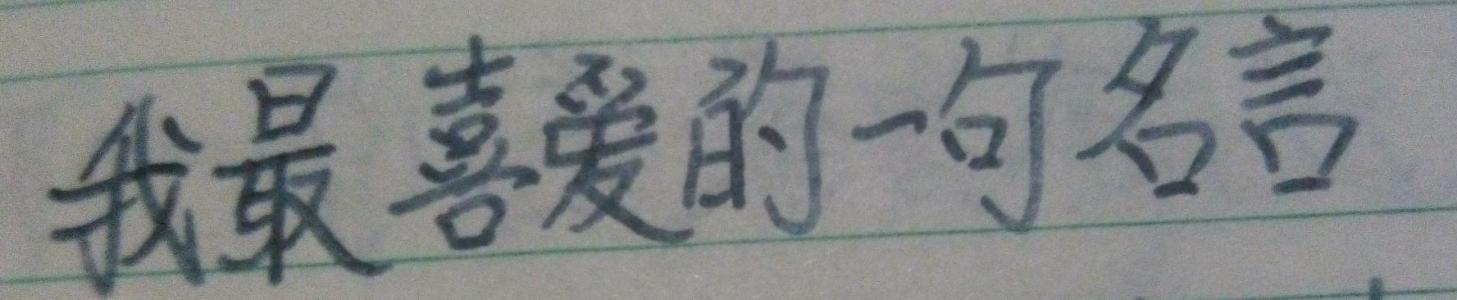 我最喜爱的一句名言